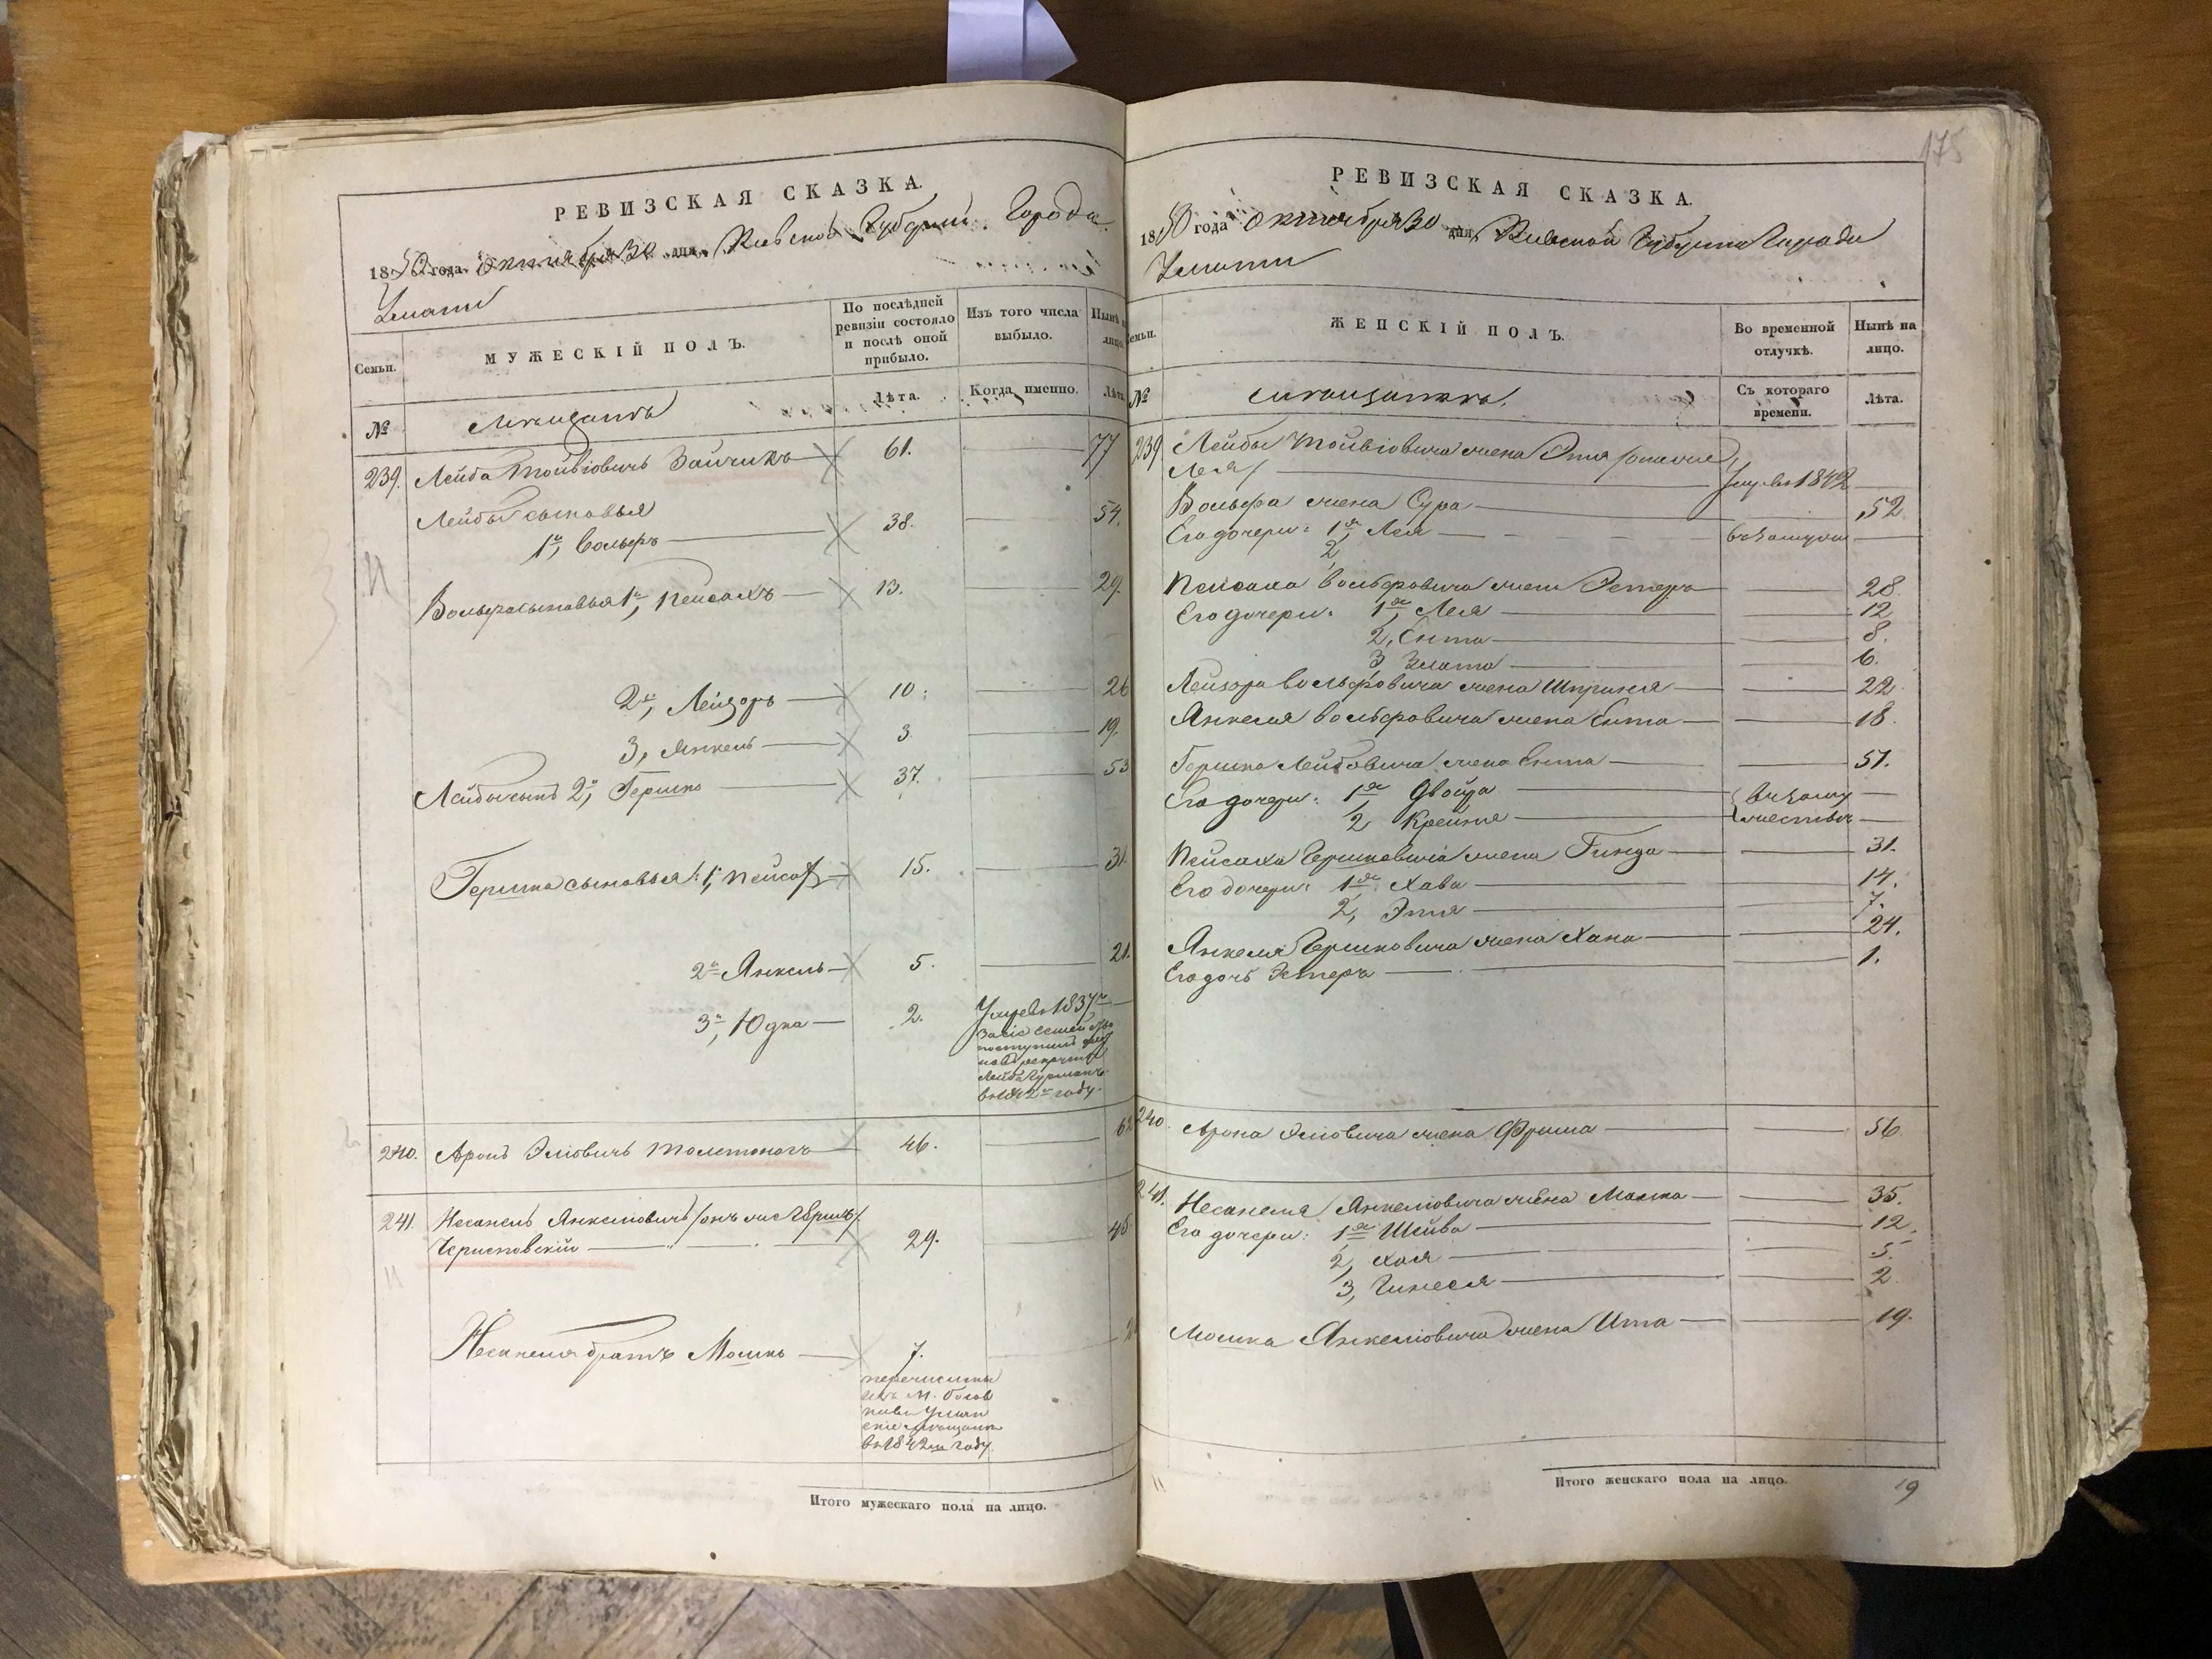 РЕВИЗСКАЯ СКАЗКА.
1850 года октября 30 дня, Киевской Губернии Города
Умани
Семьи.
МУЖЕСКІЙ ПОЛЪ.
По послѣдней ревизіи состояло и послѣ оной прибыло.
Изъ того числа выбыло.
Нынѣ на лицо.
№
Мѣщанъ
Лѣта.
Когда именно.
Лѣта
239. Лейба Тойвіовичъ Зайчикъ 61. 77
Лейбы сыновья
1й, Вольфъ 38. 54.
Вольфа сыновья 1й, Пейсахъ 13. 29.
2й, Лейзоръ 10. 26
3, Янкель 3. 19.
Лейбы сынъ 2й, Гершко 37. 53
Гершка сыновья: 1й, Пейсах 15. 31.
2й Янкель 5. 21.
3й, Юдка 2. Умре въ 1837
въ 1842м году.
240. Аронъ Эліовичъ Толстоногъ 46. 62
241. Несанель Янкелiовичъ /онъ же Гершъ/
Черниовскій 29. 45
Несанеля братъ Мошко 7. 2
перечислены
изъ М.
Уман
скіе мѣщане
въ 1842м году.
Итого мужескаго пола на лицо.
175
РЕВИЗСКАЯ СКАЗКА.
1850 года октября 30 дня, Киевской Губернии Города
Умани
Семьи.
ЖЕНСКІЙ ПОЛЪ.
Во временной отлучкѣ.
Нынѣ на лицо.
№
мѣщанкъ.
Съ котораго времени.
Лѣта.
239 Лейбы Тойвіовича жена Этя /она же
Лея/ Умре въ 1842
Вольфа жена Сура 52.
Его дочери: 1я, Лея въ замуж
2
Пейсаха Вольфовича жена Эстеръ 28.
Его дочери: 1я, Лея 12
2, Ента 8.
3, Злата 6.
Лейзора Вольфовича жена Шпринця 22
Янкеля Вольфовича жена Ента 18.
Гершка Лейбовича жена Ента 51.
Его дочери: 1я Двойра въ заму
2 Крейня жествѣ
Пейсаха Гершковича жена Гинда 31.
Его дочери: 1я, Хава 14.
2, Этя 7.
Янкеля Гершковича жена Хана 24.
Его дочь Эстеръ 1.
240. Арона Эліовича жена Фрима 56.
241. Несанеля Янкелiовича жена Малка 35.
Его дочери: 1я Шейва 12.
2, Хая 5.
3, Гинеся 2
Мошка Янкелiовича жена Ита 19.
Итого женскаго пола на лицо.
19